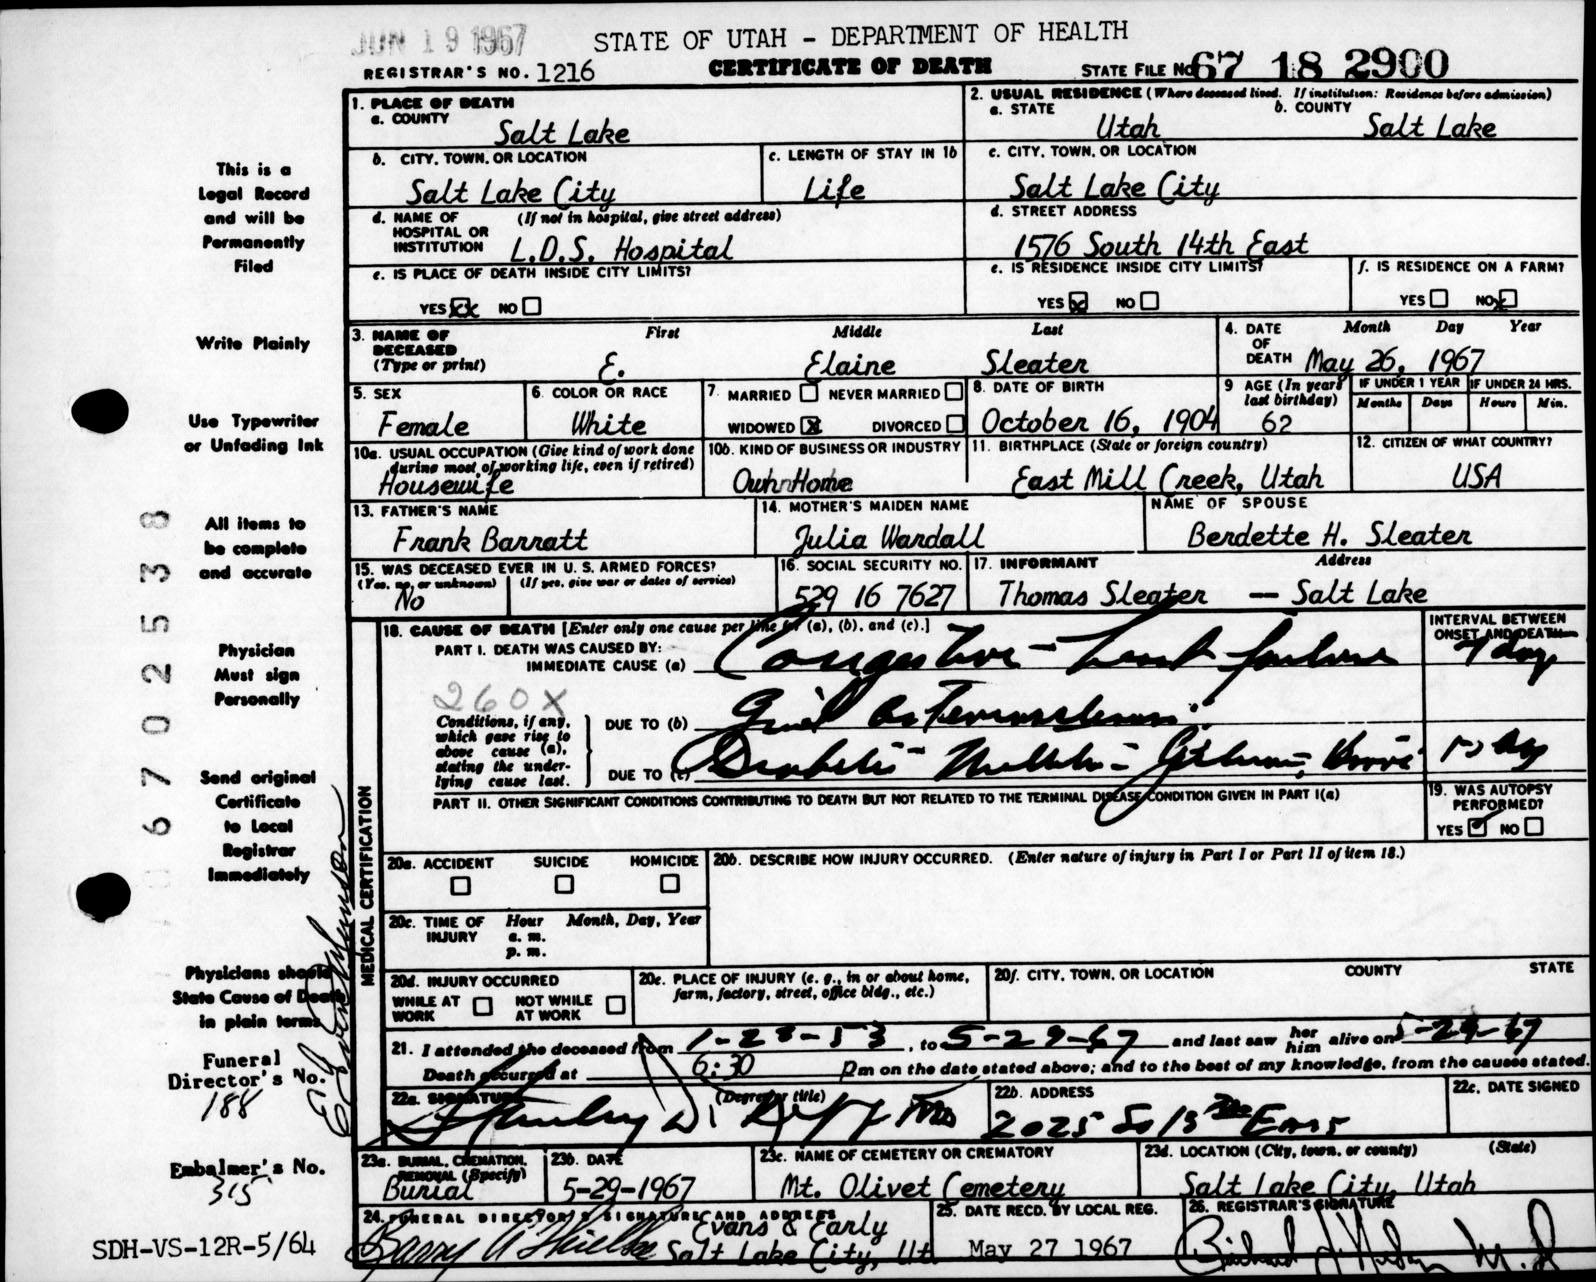 JUN 19 1967
STATE OF UTAH - DEPARTMENT OF HEALTH
REGISTRAR'S NO. 1216 CERTIFICATE OF DEATH STATE FILE NO 67 18 2900
1. PLACE OF DEATH
a. COUNTY Salt Lake
2. USUAL RESIDENCE (Where deceased lived. If institution: Residence before admission)
a. STATE Utah b. COUNTY Salt Lake
b. CITY, TOWN, OR LOCATION Salt Lake City
c. LENGTH OF STAY IN 1b Life
c. CITY, TOWN, OR LOCATION Salt Lake City
d. NAME OF HOSPITAL OR INSTITUTION (If not in hospital, give street address) L.D.S. Hospital
d. STREET ADDRESS 1576 South 14th East
e. IS PLACE OF DEATH INSIDE CITY LIMITS?
YES XX NO
e. IS RESIDENCE INSIDE CITY LIMITS?
YES X NO
f. IS RESIDENCE ON A FARM?
YES NO X
3. NAME OF DECEASED (Type or print) First Middle Last
E. Elaine Sleater
4. DATE OF DEATH Month Day Year
May 26, 1967
5. SEX Female
6. COLOR OR RACE White
7. MARRIED NEVER MARRIED
WIDOWED X DIVORCED
8. DATE OF BIRTH October 16, 1904
9 AGE (In years last birthday) 62
IF UNDER 1 YEAR Months Days
IF UNDER 24 HRS. Hours Min.
10a. USUAL OCCUPATION (Give kind of work done during most of working life, even if retired) Housewife
10b. KIND OF BUSINESS OR INDUSTRY Own Home
11. BIRTHPLACE (State or foreign country) East Mill Creek, Utah
12. CITIZEN OF WHAT COUNTRY? USA
13. FATHER'S NAME Frank Barratt
14. MOTHER'S MAIDEN NAME Julia Wardall
NAME OF SPOUSE Berdette H. Sleater
15. WAS DECEASED EVER IN U. S. ARMED FORCES?
(Yes, no, or unknown) (If yes, give war or dates of service)
No
16. SOCIAL SECURITY NO. 529 16 7627
17. INFORMANT Address
Thomas Sleater — Salt Lake
MEDICAL CERTIFICATION
18. CAUSE OF DEATH [Enter only one cause per line for (a), (b), and (c).]
INTERVAL BETWEEN ONSET AND DEATH
PART I. DEATH WAS CAUSED BY:
IMMEDIATE CAUSE (a) Congestive - heart failure
260X
Conditions, if any, which gave rise to above cause (a), stating the underlying cause last.
DUE TO (b)
DUE TO (c) Diabetis
PART II. OTHER SIGNIFICANT CONDITIONS CONTRIBUTING TO DEATH BUT NOT RELATED TO THE TERMINAL DISEASE CONDITION GIVEN IN PART I(a)
19. WAS AUTOPSY PERFORMED?
YES NO
20a. ACCIDENT SUICIDE HOMICIDE
20b. DESCRIBE HOW INJURY OCCURRED. (Enter nature of injury in Part I or Part II of item 18.)
20c. TIME OF INJURY Hour Month, Day, Year
a. m.
p. m.
20d. INJURY OCCURRED
WHILE AT WORK NOT WHILE AT WORK
20e. PLACE OF INJURY (e. g., in or about home, farm, factory, street, office bldg., etc.)
20f. CITY, TOWN, OR LOCATION COUNTY STATE
21. I attended the deceased from 1-28-53, to 5-29-67 and last saw her him alive on 5-29-67
Death occurred at 6:30 Pm on the date stated above; and to the best of my knowledge, from the causes stated.
22a. SIGNATURE (Degree or title)
22b. ADDRESS 2025 So 13th East
22c. DATE SIGNED
23a. BURIAL, CREMATION, REMOVAL (Specify) Burial
23b. DATE 5-29-1967
23c. NAME OF CEMETERY OR CREMATORY Mt. Olivet Cemetery
23d. LOCATION (City, town, or county) (State)
Salt Lake City, Utah
24. FUNERAL DIRECTOR'S SIGNATURE AND ADDRESS
Evans & Early
Salt Lake City, Ut
25. DATE RECD. BY LOCAL REG. May 27 1967
26. REGISTRAR'S SIGNATURE
This is a
Legal Record
and will be
Permanently
Filed
Write Plainly
Use Typewriter
or Unfading Ink
All items to
be complete
and accurate
Physician
Must sign
Personally
Send original
Certificate
to Local
Registrar
Immediately
Physicians should
State Cause of Death
in plain terms
Funeral
Director's No.
188
Embalmer's No.
315
SDH-VS-12R-5/64
06702538